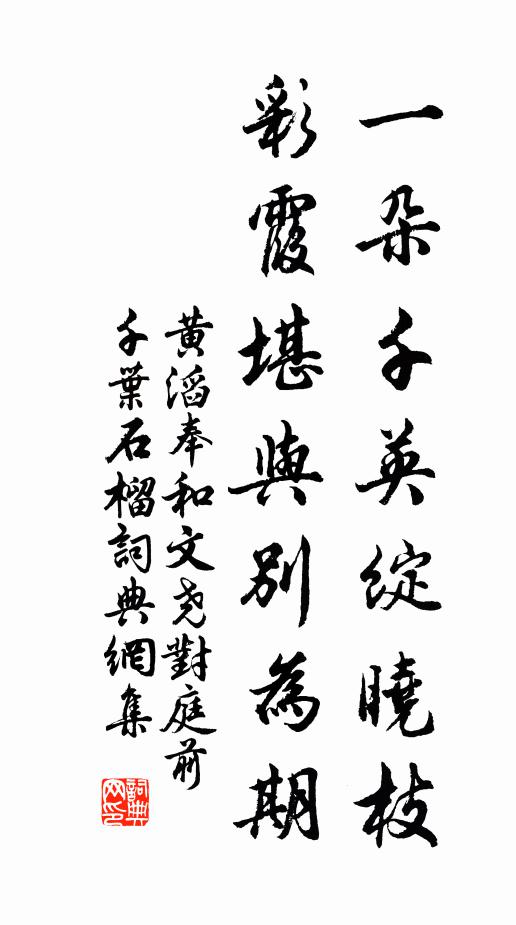 一朵千英綻曉枝
彩霞堪與別為期
黃滔奉和文尧對庭前
千葉石榴詞典網集
詞典
网印